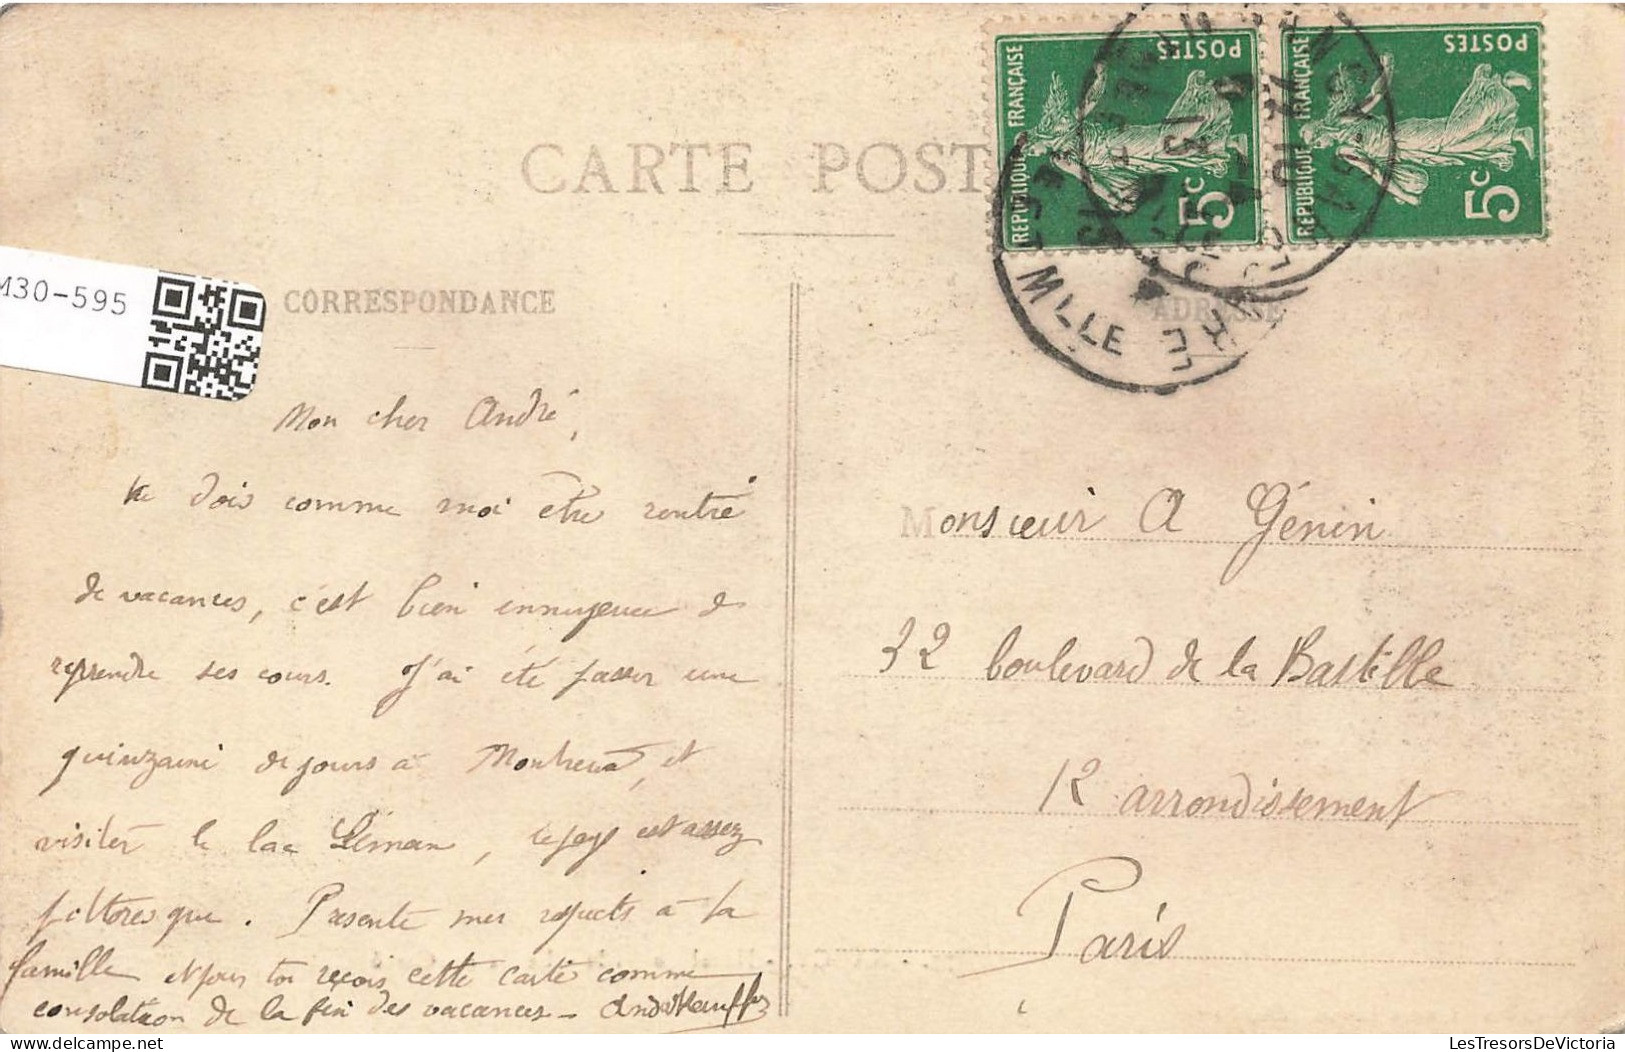 CARTE POST
RÉPUBLIQUE FRANÇAISE
POSTES
5c
RÉPUBLIQUE FRANÇAISE
POSTES
5c
M30-595
CORRESPONDANCE
ADRESSE
Mon cher André,
Tu dois comme moi être rentré
de vacances, c'est bien ennuyeux de
reprendre ses cours. J'ai été passer une
quinzaine de jours à Montreux, et
visiter le lac Léman, le pays est assez
pittoresque. Présente mes respects à ta
famille et pour toi reçois cette carte comme
consolation de la fin des vacances -
Monsieur A Génin
32 boulevard de la Bastille
12 arrondissement
Paris
LesTresorsDeVictoria.com